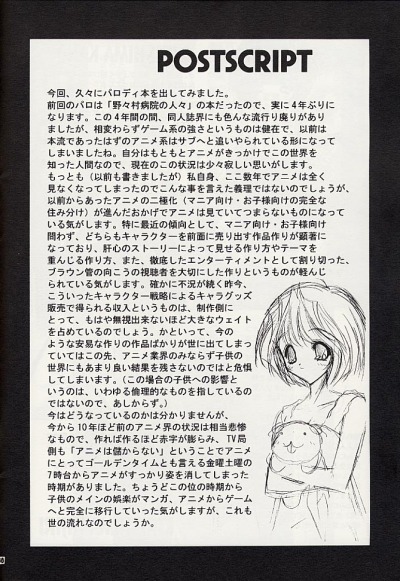 POSTSCRIPT
今回、久々にパロディ本を出してみました。
前回のパロは「野々村病院の人々」の本だったので、実に４年ぶりに
なります。この４年間の間、同人誌界にも色んな流行り廃りがあり
ましたが、相変わらずゲーム系の強さというものは健在で、以前は
本流であったはずのアニメ系はサブへと追いやられている形になって
しまいましたね。自分はもともとアニメがきっかけでこの世界を
知った人間なので、現在のこの状況は少々寂しい思いがします。
もっとも（以前も書きましたが）私自身、ここ数年でアニメは全く
見なくなってしまったのでこんな事を言えた義理ではないのでしょうが、
以前からあったアニメの二極化（マニア向け・お子様向けの完全な
住み分け）が進んだおかげでアニメは見ていてつまらないものになって
いる気がします。特に最近の傾向として、マニア向け・お子様向け
問わず、どちらもキャラクターを前面に売り出す作品作りが顕著に
なっており、肝心のストーリーによって見せる作り方やテーマを
重んじる作り方、また、徹底したエンターティメントとして割り切った、
ブラウン管の向こうの視聴者を大切にした作りというものが軽んじ
られている気がします。確かに不況が続く昨今、
こういったキャラクター戦略によるキャラグッズ
販売で得られる収入というものは、制作側に
とって、もはや無視出来ないほど大きなウェイト
を占めているのでしょう。かといって、今の
ような安易な作りの作品ばかりが世に出てしまっ
ていてはこの先、アニメ業界のみならず子供の
世界にもあまり良い結果を残さないのではと危惧
してしまいます。（この場合の子供への影響と
いうのは、いわゆる倫理的なものを指しているの
ではないので、あしからず。）
今はどうなっているのかは分かりませんが、
今から１０年ほど前のアニメ界の状況は相当悲惨
なもので、作れば作るほど赤字が膨らみ、ＴＶ局
側も「アニメは儲からない」ということでアニメ
にとってゴールデンタイムとも言える金曜土曜の
７時台からアニメがすっかり姿を消してしまった
時期がありました。ちょうどこの位の時期から
子供のメインの娯楽がマンガ、アニメからゲーム
へと完全に移行していった気がしますが、これも
世の流れなのでしょうか。